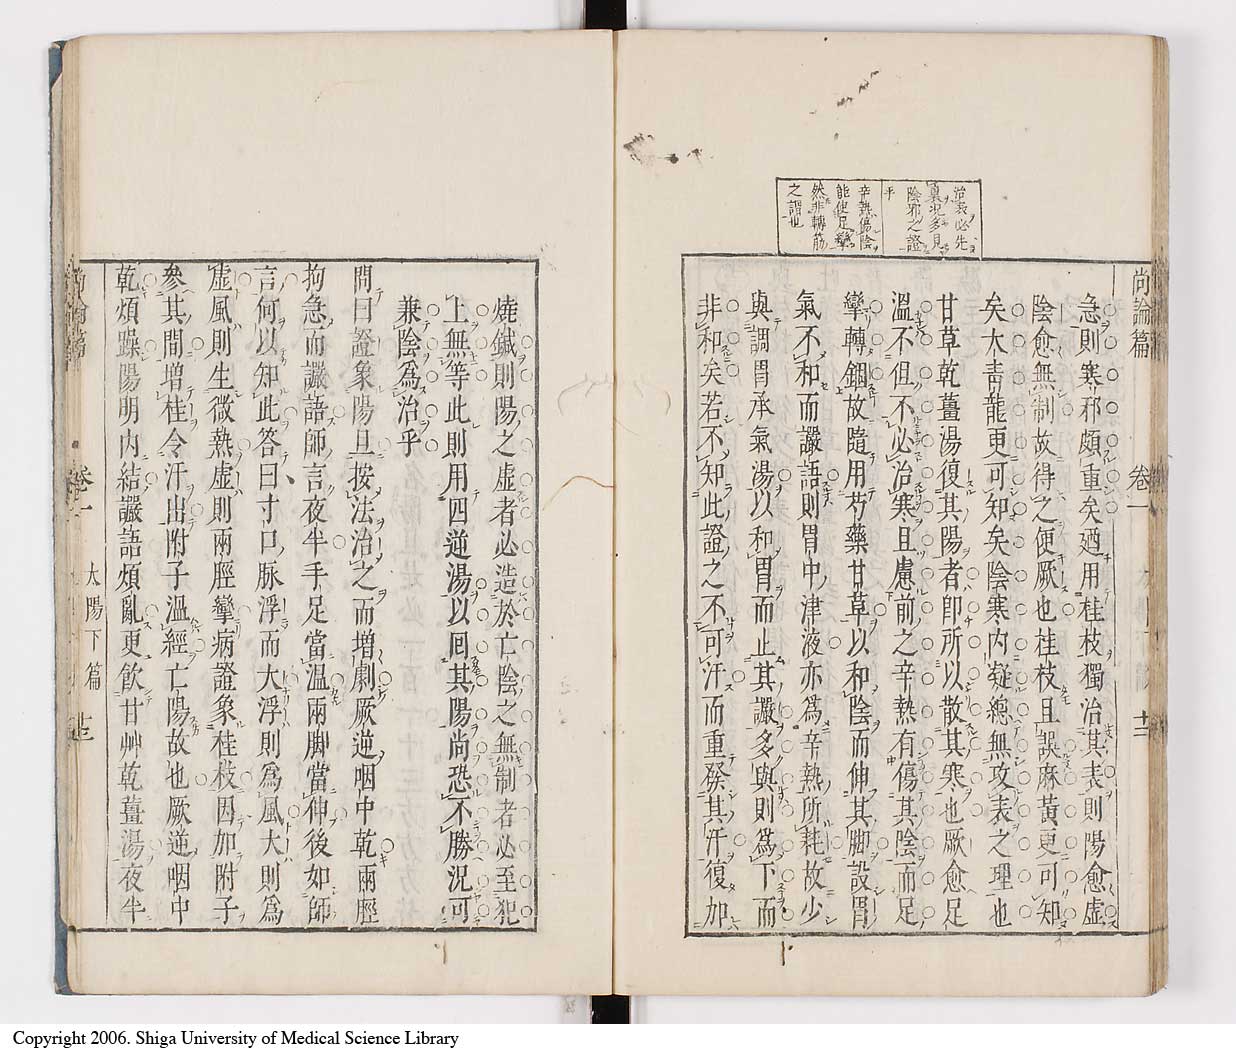 治表必先
裏況多見
陰邪之證
乎
辛熱傷陰
能使足攣
然非轉筋
之謂也
尚論篇
卷一
十三
急則寒邪頗重矣廼用桂枝獨治其表則陽愈虛
陰愈無制故得之便厥也桂枝且誤麻黃更可知
矣大青龍更可知矣陰寒內凝總無攻表之理也
甘草乾薑湯復其陽者卽所以散其寒也厥愈足
溫不但不必治寒且慮前之辛熱有傷其陰而足
攣轉錮故隨用芍藥甘草以和陰而伸其脚設胃
氣不和而讝語則胃中津液亦爲辛熱所耗故少
與調胃承氣湯以和胃而止其讝多與則爲下而
非和矣若不知此證之不可汗而重發其汗復加
燒鍼則陽之虛者必造於亡陰之無制者必至犯
上無等此則用四逆湯以囘其陽尚恐不勝況可
兼陰爲治乎
問曰證象陽旦按法治之而增劇厥逆咽中乾兩脛
拘急而讝語師言夜半手足當溫兩脚當伸後如師
言何以知此答曰寸口脉浮而大浮則爲風大則爲
虛風則生微熱虛則兩脛攣病證象桂枝因加附子
參其間增桂令汗出附子溫經亡陽故也厥逆咽中
乾煩躁陽明內結讝語煩亂更飲甘艸乾薑湯夜半
尚論篇
卷一
太陽下篇
廿三
Copyright 2006. Shiga University of Medical Science Library